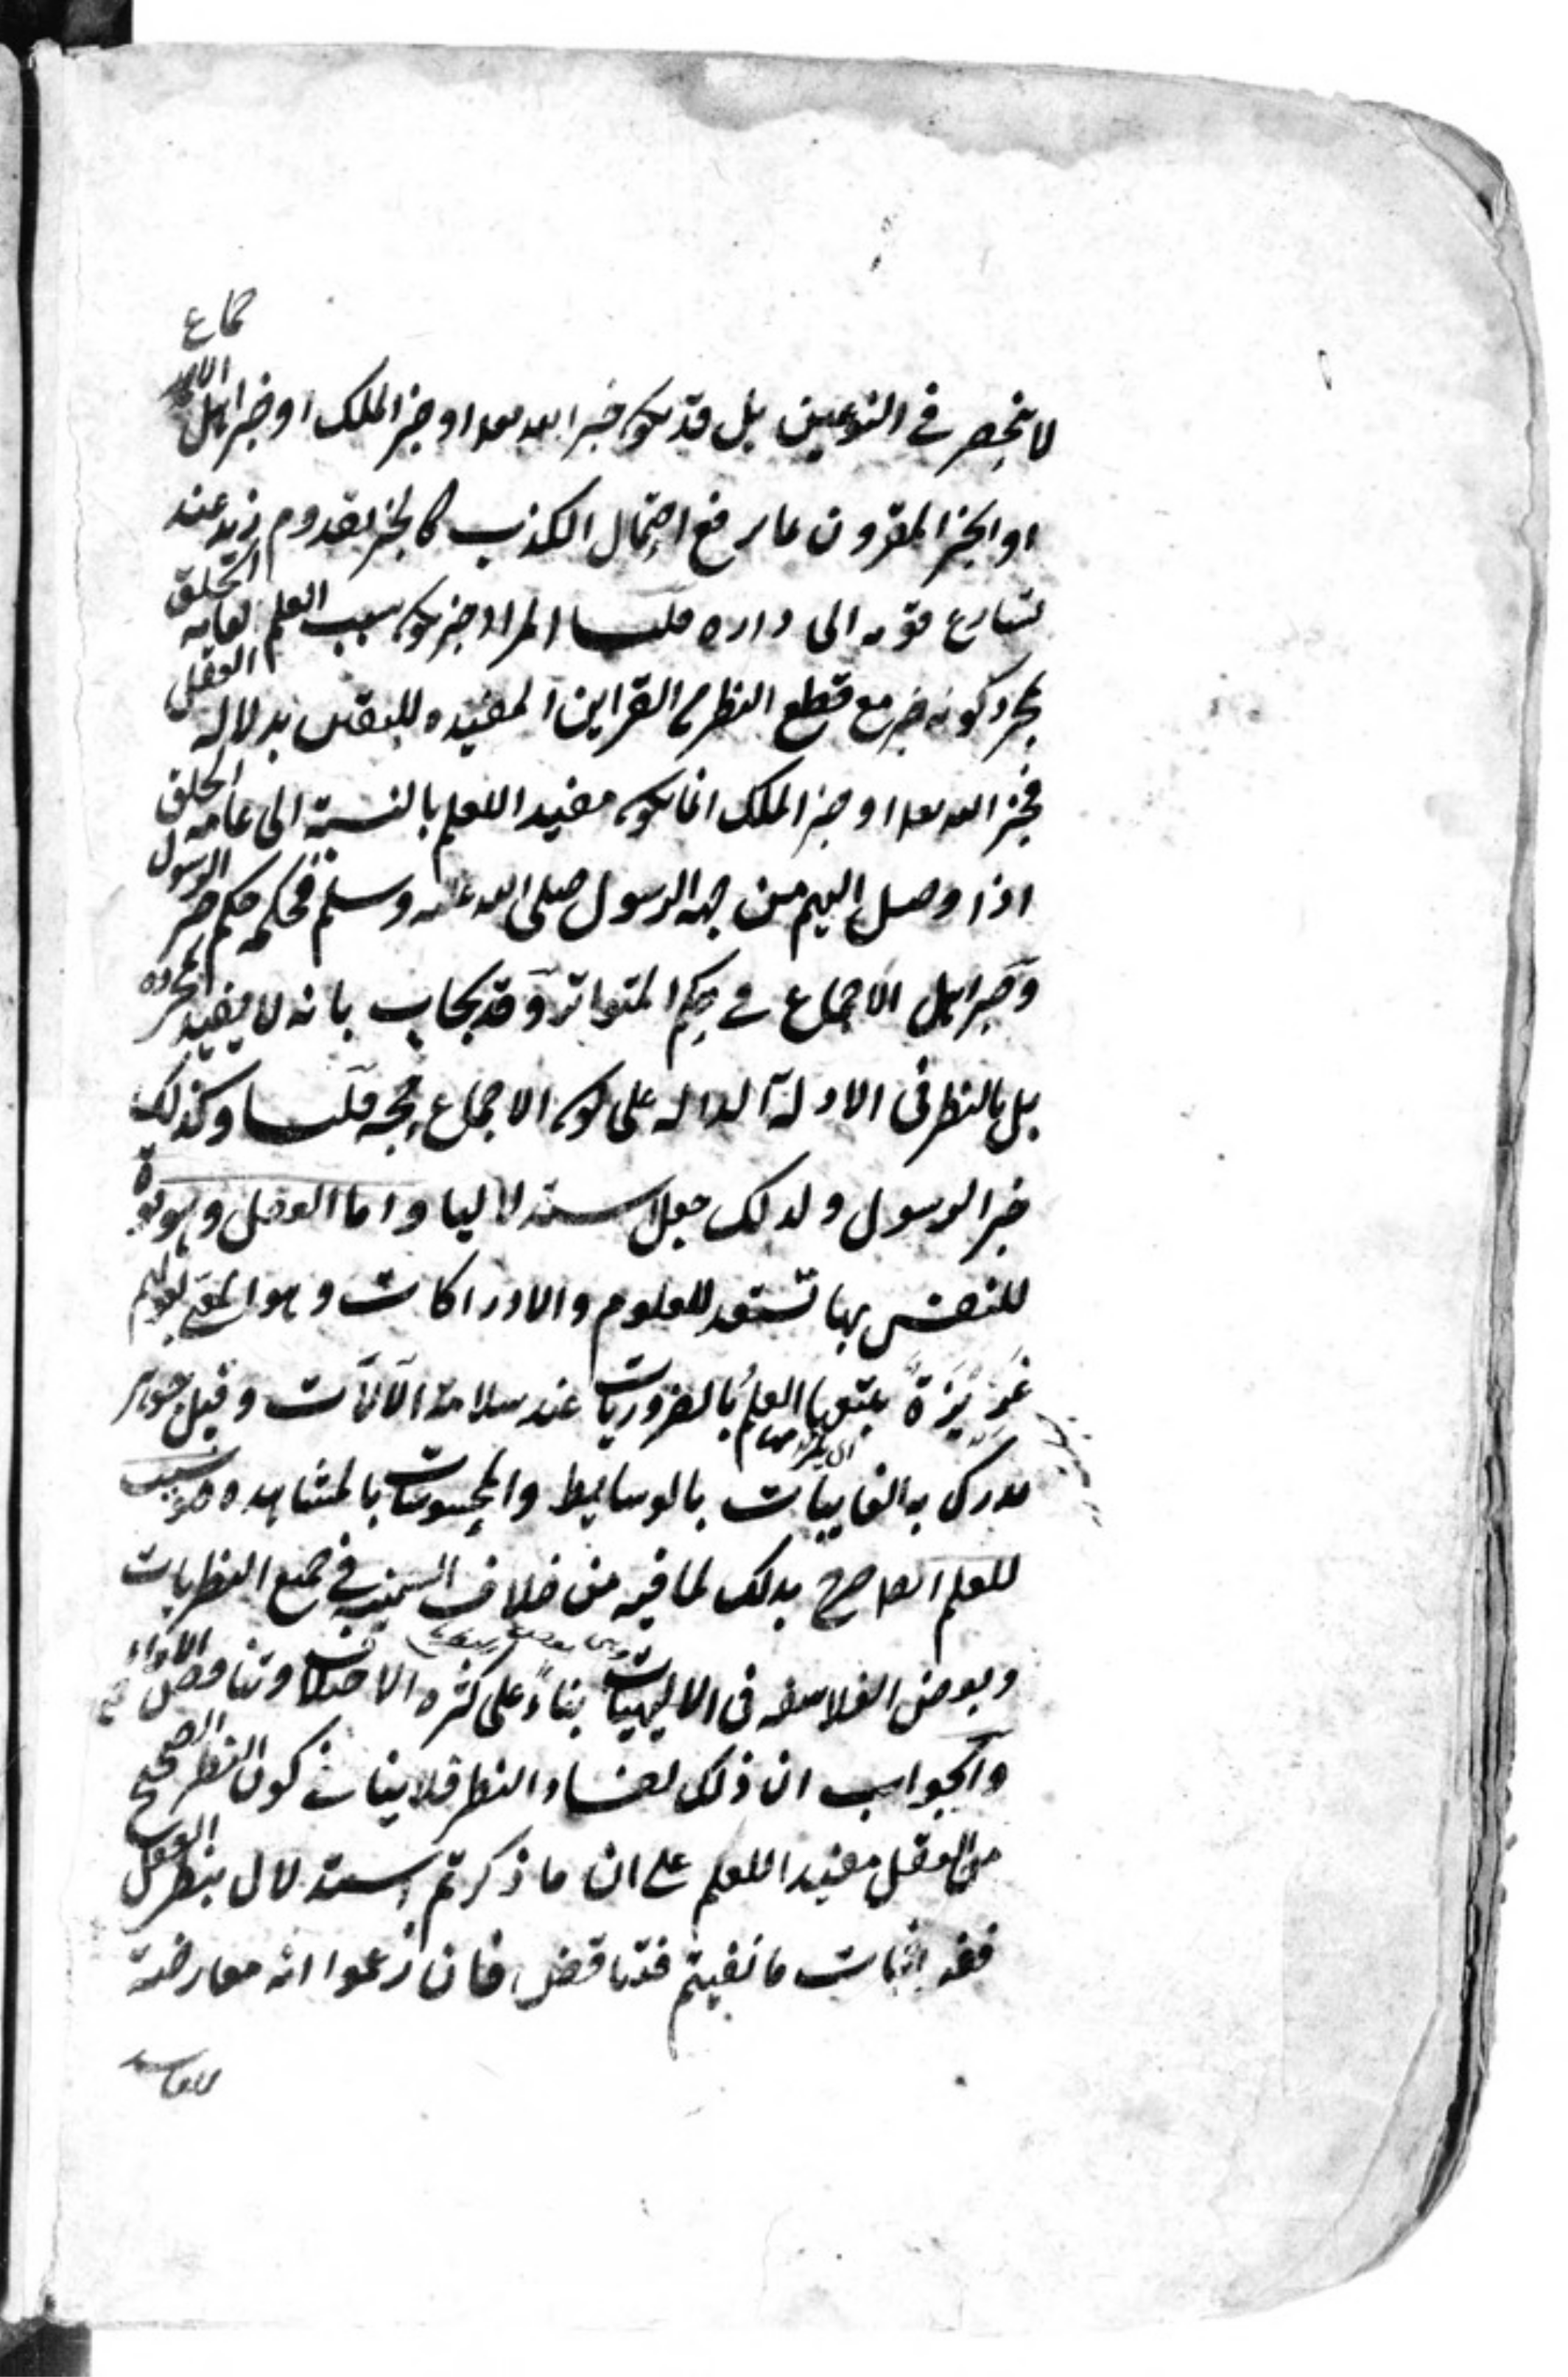 لا ينحصر في النوعين بل قد يكون خبر الله تعالى او خبر الملك او خبر اهل الاجماع
او الخبر المقرون بما يرفع احتمال الكذب كالخبر بقدوم زيد عند
تسارع قومه الى داره قلنا المراد خبر يكون سبب العلم لعامة الخلق
بمجرد كونه خبر مع قطع النظر عن القراين المفيده لليقين بدلالة العقل
فخبر الله تعالى او خبر الملك انما يكون مفيدا للعلم بالنسبة الى عامة الخلق
اذا وصل اليهم من جهة الرسول صلى الله عليه وسلم فحكمه حكم خبر الرسول
وخبر اهل الاجماع في حكم المتواتر وقد يجاب بانه لا يفيد بمجرده
بل بالنظر في الادلة الدالة على كون الاجماع حجة قلنا وكذلك
خبر الرسول ولذلك جعل استدلاليا واما العقل وهو قوة
للنفس بها تستعد للعلوم والادراكات وهو المعنى بقولهم
غريزة يتبعها العلم بالضروريات عند سلامة الآلات وقيل جوهر
يدرك به الغايبات بالوسايط والمحسوسات بالمشاهده فهو سبب
للعلم ايضا صرح بذلك لما فيه من خلاف السمنية في جميع النظريات
وبعض الفلاسفه في الالهيات بناءً على كثرة الاختلاف وتناقض الآراء
والجواب ان ذلك لفساد النظر فلا ينافي كون النظر الصحيح
من العقل مفيدا للعلم على ان ما ذكرتم استدلال بنظر العقل
ففيه اثبات ما نفيتم فتناقض فان زعموا انه معارضة
للفاسد